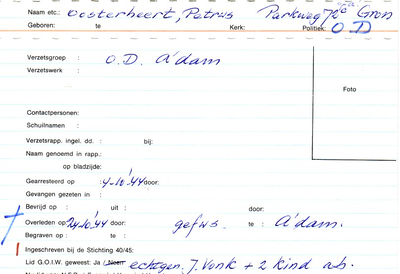 Naam etc.: Oosterheert, Petrus Parkweg 78a Gron
Geboren: te Kerk: Politiek: O D
Verzetsgroep : O.D. A'dam
Verzetswerk :
Foto
Contactpersonen:
Schuilnamen :
Verzetsrapp. ingel. dd. : bij:
Naam genoemd in rapp.:
op bladzijde:
Gearresteerd op : 4-10-'44 door:
Gevangen gezeten in :
Bevrijd op : uit : door:
Overleden op: 24-10-'44 door: gef ws. te : A'dam.
Begraven op : te :
Ingeschreven bij de Stichting 40/45:
Lid G.O.I.W. geweest: Ja / Neen echtgen. J. Vonk + 2 kind